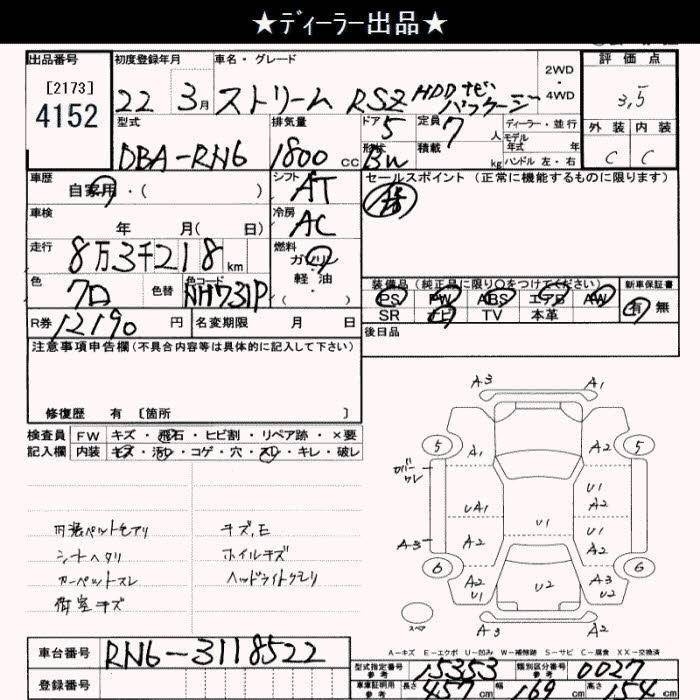 ★ディーラー出品★
出品番号 初度登録年月 車名・グレード 評価点
[2173]
4152
22 3月 ストリーム RSZ HDDナビパッケージ
2WD
4WD
3,5
型式 排気量 ドア 5 定員 7人 ディーラー・並行 外装 内装
DBA-RN6 1800cc 形状 Bw 積載 kg モデル年式 年 C C
ハンドル 左・右
車歴 自家用・( ) シフト AT セールスポイント (正常に機能するものに限ります)
車検 年 月( 日) 冷房 AC
走行 8万3千218km 燃料 ガソリン・軽油
色 クロ 色替 色コード NH731P 装備品(純正品に限り○をつけてください) 新車保証書
PS PW ABS エアB AW 有 無
SR ナビ TV 本革
R券 12190円 名変期限 月 日 後日品
注意事項申告欄(不具合内容等は具体的に記入して下さい)
修復歴 有 〔箇所 〕
検査員 FW キズ・飛石・ヒビ割・リペア跡・×要
記入欄 内装 キズ・汚レ・コゲ・穴・スレ・キレ・破レ
A3 A1
5 A1 A2 5
UA1 U1 U1 A2
A3 A2 U1 A2
6 A2 U1 U2 A3 U2 6
A3 A2
内装ペットモアリ キズ,E
シートヘタリ ホイルキズ
カーペットスレ ヘッドライトクモリ
荷室キズ
スペア
A－キズ E－エクボ U－凹み W－補修跡 S－サビ C－腐食 XX－交換済
車台番号 RN6-3118522
型式指定番号 参考 15353 類別区分番号 参考 0027
登録番号 車庫証明用 参考 長さ 457cm 幅 169cm 高さ 154cm